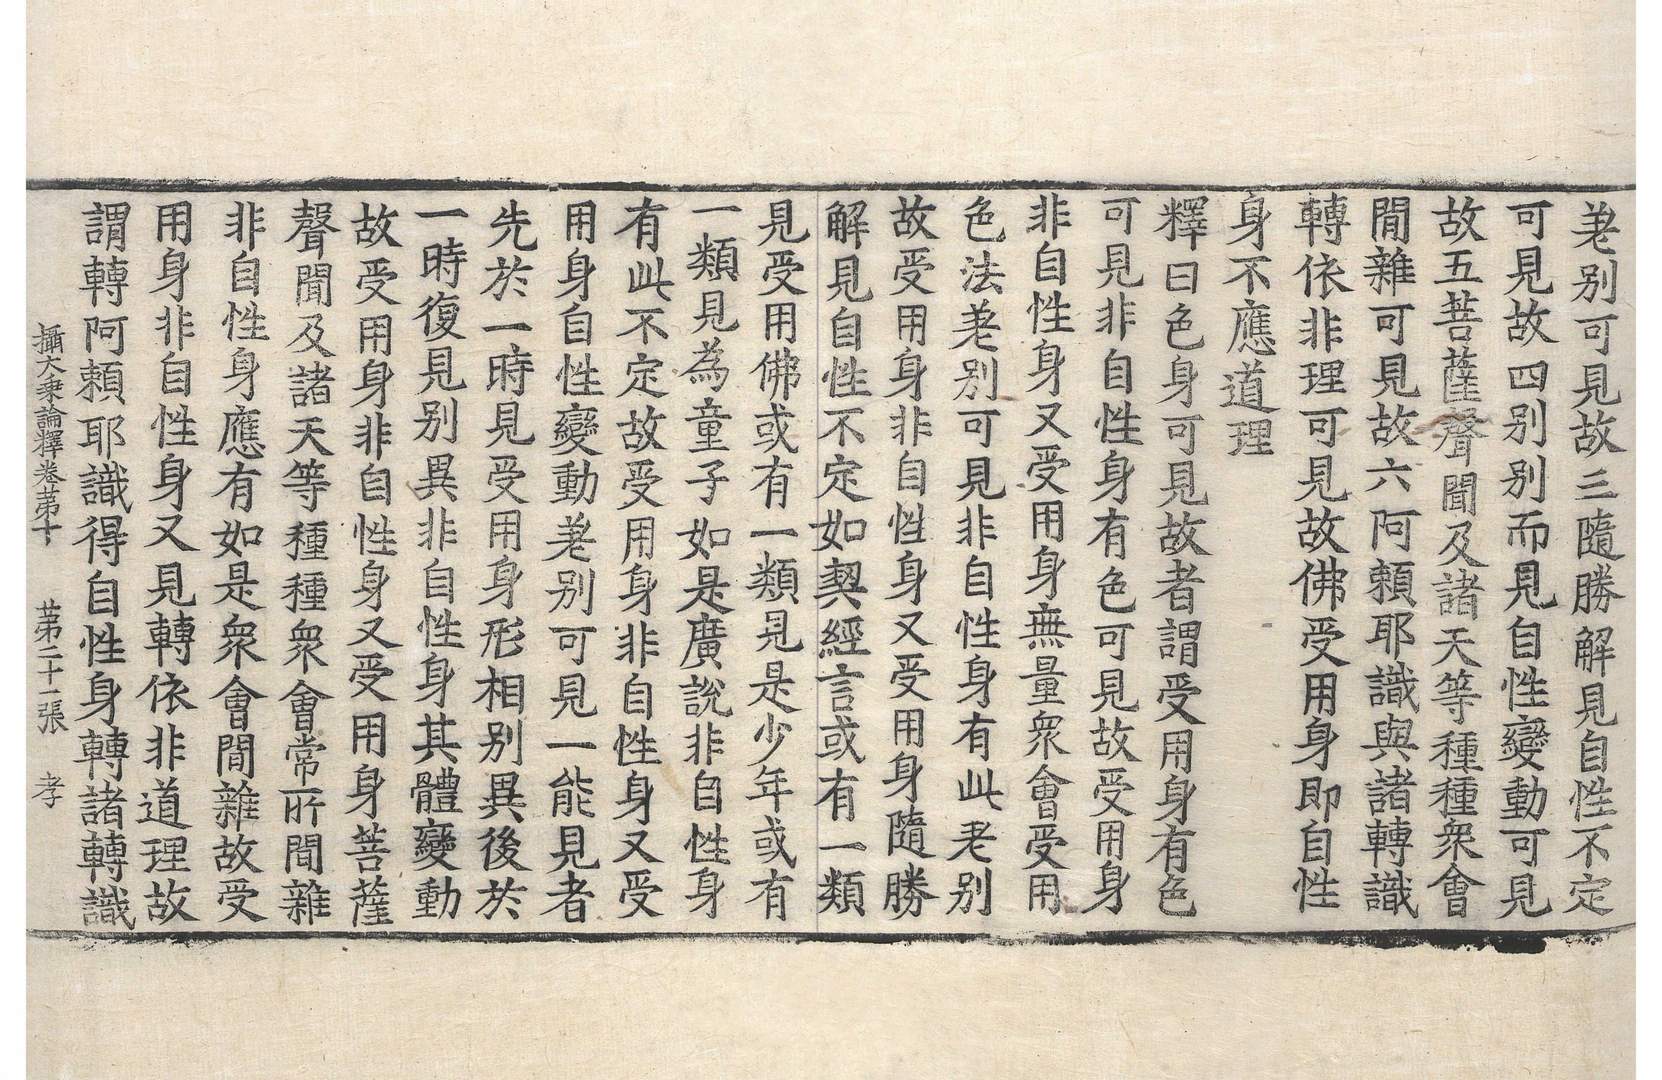 差別可見故三隨勝解見自性不定
可見故四別別而見自性變動可見
故五菩薩聲聞及諸天等種種衆會
間雜可見故六阿賴耶識與諸轉識
轉依非理可見故佛受用身即自性
身不應道理
釋曰色身可見故者謂受用身有色
可見非自性身有色可見故受用身
非自性身又受用身無量衆會受用
色法差別可見非自性身有此差別
故受用身非自性身又受用身隨勝
解見自性不定如契經言或有一類
見受用佛或有一類見是少年或有
一類見為童子如是廣說非自性身
有此不定故受用身非自性身又受
用身自性變動差別可見一能見者
先於一時見受用身形相別異後於
一時復見別異非自性身其體變動
故受用身非自性身又受用身菩薩
聲聞及諸天等種種衆會常所間雜
非自性身應有如是衆會間雜故受
用身非自性身又見轉依非道理故
謂轉阿賴耶識得自性身轉諸轉識
攝大乘論釋卷第十 第二十一張 孝